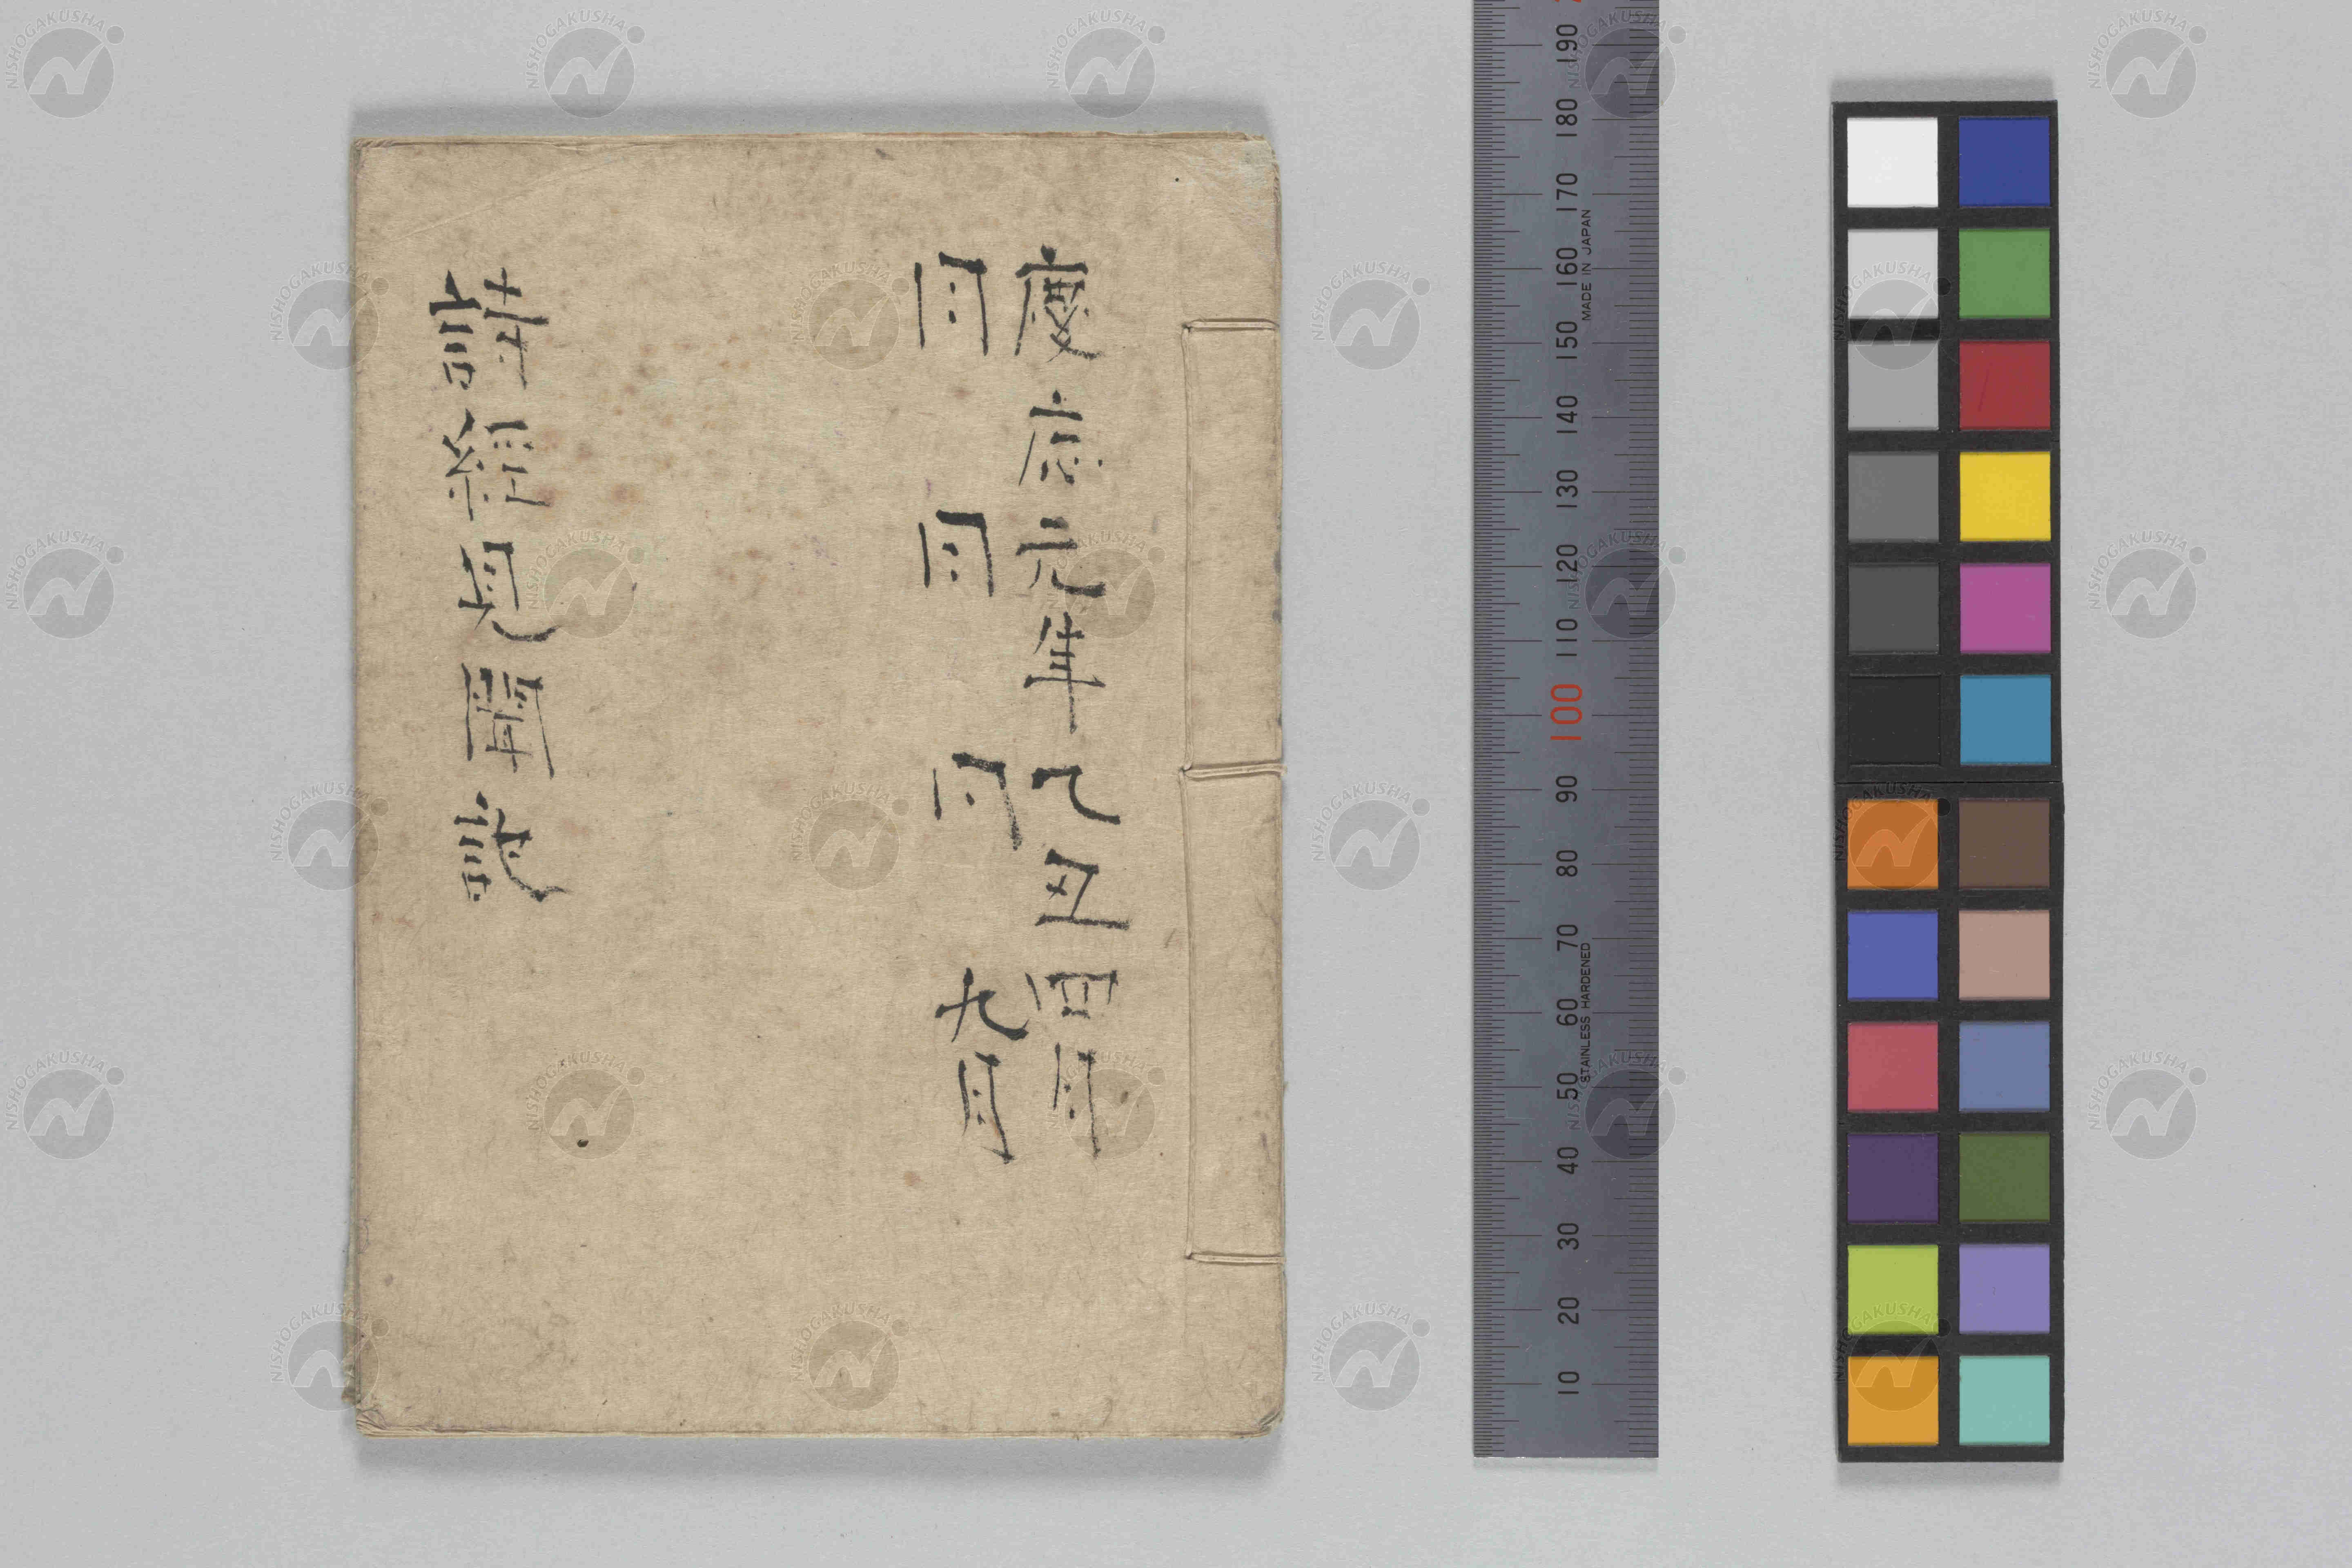 慶応元年乙丑四月
同同同九月
詩経見聞誌
190
180
170
160
150
140
130
120
110
100
90
80
70
60
50
40
30
20
10
MADE IN JAPAN
STAINLESS HARDENED
NISHOGAKUSHA